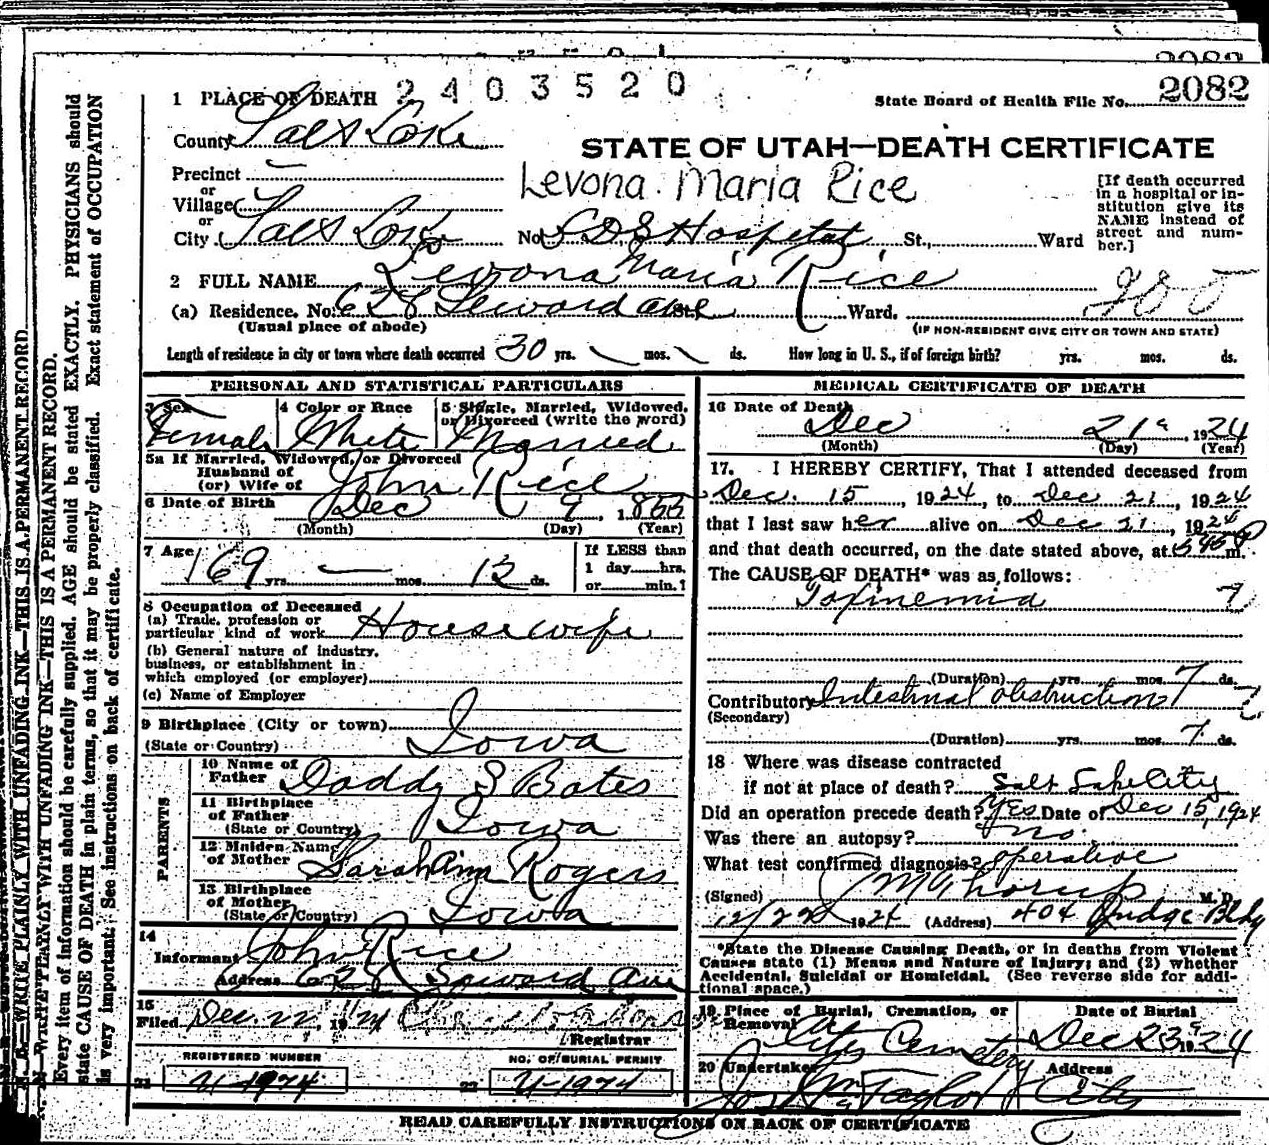 2082
2403520
1 PLACE OF DEATH
State Board of Health File No. 2082
County Salt Lake
STATE OF UTAH—DEATH CERTIFICATE
Precinct
Levona Maria Rice
or
Village
or
City Salt Lake No. L D S Hospital St., Ward
[If death occurred in a hospital or institution give its NAME instead of street and number.]
2 FULL NAME Levona Maria Rice
(a) Residence. No. 628 Seward ave Ward.
(Usual place of abode) (IF NON-RESIDENT GIVE CITY OR TOWN AND STATE)
Length of residence in city or town where death occurred 30 yrs. mos. ds. How long in U. S., if of foreign birth? yrs. mos. ds.
PERSONAL AND STATISTICAL PARTICULARS
3 Sex 4 Color or Race 5 Single, Married, Widowed, or Divorced (write the word)
Female White Married
5a If Married, Widowed, or Divorced
Husband of
(or) Wife of John Rice
6 Date of Birth Dec 9, 1855
(Month) (Day) (Year)
7 Age 69 yrs. mos. 12 ds.
If LESS than
1 day hrs.
or min.?
8 Occupation of Deceased
(a) Trade, profession or
particular kind of work Housewife
(b) General nature of industry,
business, or establishment in
which employed (or employer)
(c) Name of Employer
9 Birthplace (City or town)
(State or Country) Iowa
PARENTS
10 Name of
Father Daddy S Bates
11 Birthplace
of Father
(State or Country) Iowa
12 Maiden Name
of Mother Sarah Ann Rogers
13 Birthplace
of Mother
(State or Country) Iowa
14
Informant John Rice
Address 628 Seward Ave
15
Filed Dec. 22, 19
Registrar
REGISTERED NUMBER NO. OF BURIAL PERMIT
21 U-1974 22 U-1974
MEDICAL CERTIFICATE OF DEATH
16 Date of Death
Dec 21, 1924
(Month) (Day) (Year)
17. I HEREBY CERTIFY, That I attended deceased from
Dec. 15, 1924, to Dec 21, 1924
that I last saw her alive on Dec 21, 1924
and that death occurred, on the date stated above, at 545 P m.
The CAUSE OF DEATH* was as follows:
Toxinemia 7
(Duration) yrs. mos. 7 ds.
Contributory Intestinal obstruction
(Secondary)
(Duration) yrs. mos. 7 ds.
18 Where was disease contracted
if not at place of death? Salt Lake City
Did an operation precede death? Yes Date of Dec 15, 1924
Was there an autopsy? no.
What test confirmed diagnosis? operative
(Signed) M.D.
12/22 1924 (Address) 404 Judge Bldg
*State the Disease Causing Death, or in deaths from Violent
Causes state (1) Means and Nature of Injury; and (2) whether
Accidental, Suicidal or Homicidal. (See reverse side for addi-
tional space.)
19 Place of Burial, Cremation, or Removal Date of Burial
City Cemetery Dec 23 1924
20 Undertaker Address
Taylor City
READ CAREFULLY INSTRUCTIONS ON BACK OF CERTIFICATE
N. B.—WRITE PLAINLY WITH UNFADING INK—THIS IS A PERMANENT RECORD.
Every item of information should be carefully supplied. AGE should be stated EXACTLY. PHYSICIANS should
state CAUSE OF DEATH in plain terms, so that it may be properly classified. Exact statement of OCCUPATION
is very important. See instructions on back of certificate.